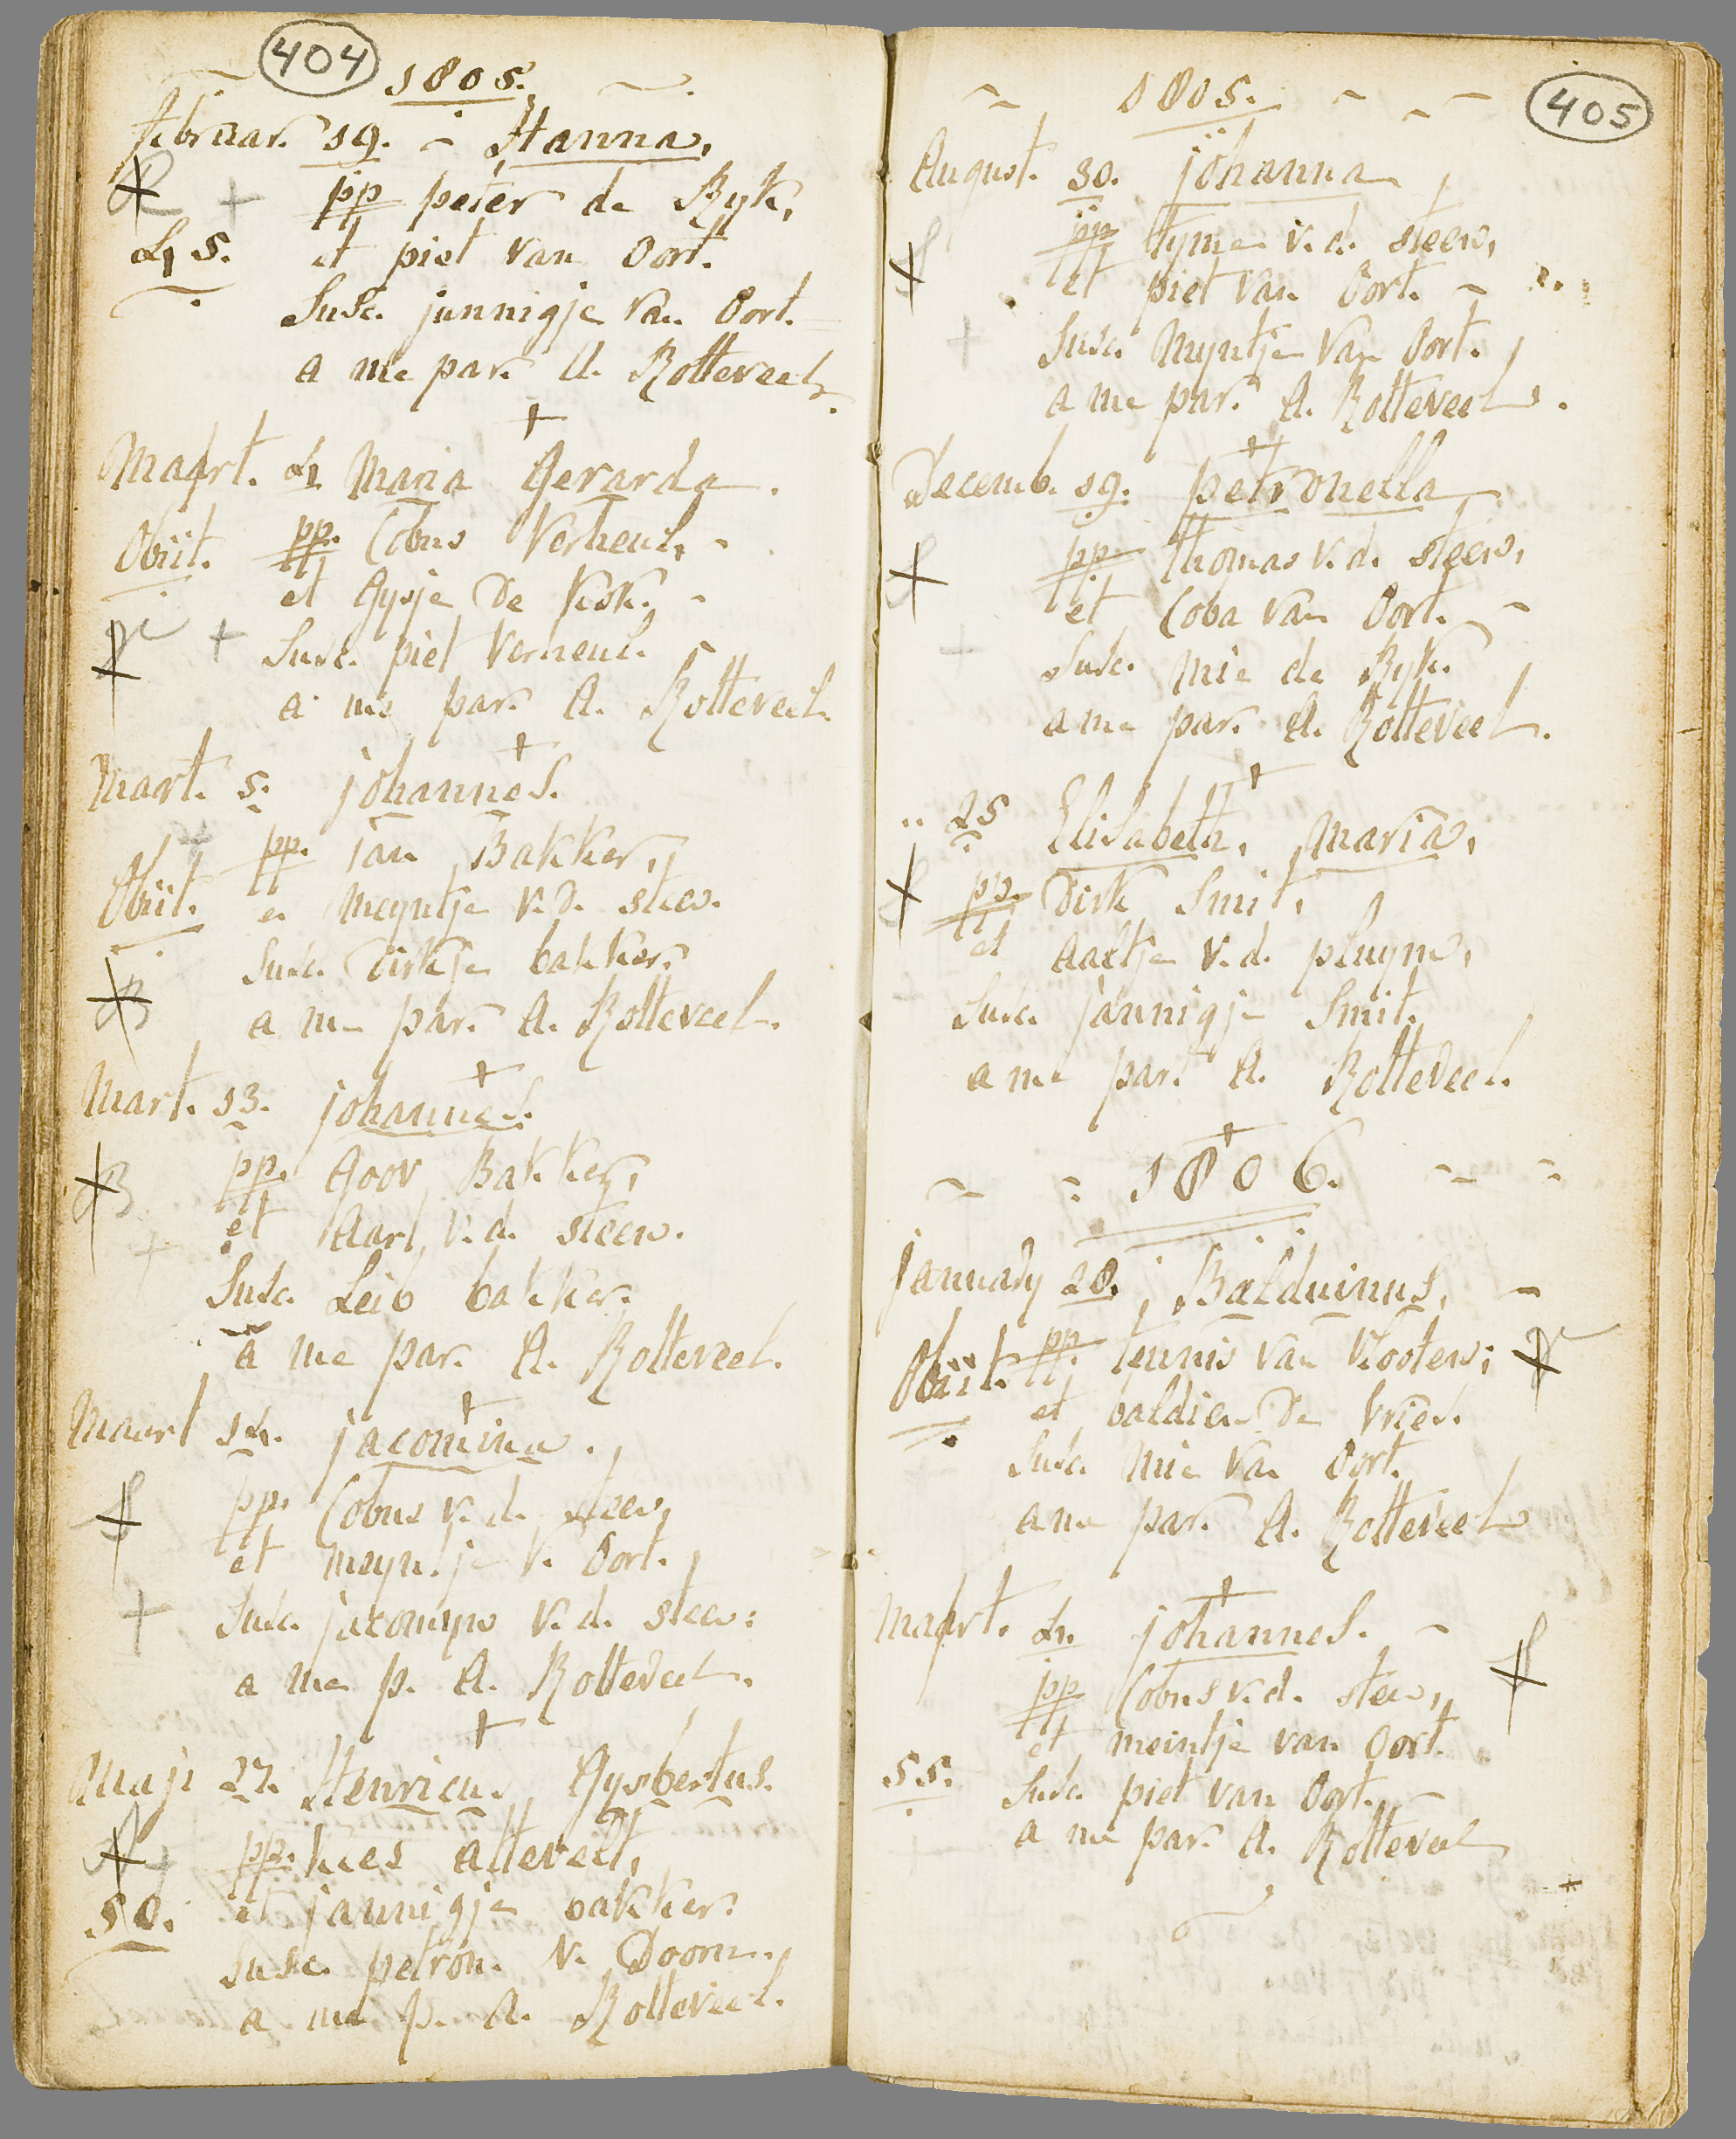 404
1805.
Februar. 19. Hanna,
pp peter de Ryk,
45. et piet van Oort.
Susc. jannigje van Oort.
a me par. A. Rotteveel.
Maart. 4 Maria Gerarda.
Obiit. pp. Cobus Verheul,
et Gysje De Kok.
Susc. piet Verheul.
a me par. A. Rotteveel.
Mart. 5. johannes.
pp. jan Bakker,
Obiit. et meyntje v. d. steew.
Susc. Dirkje bakker.
a me par. A. Rotteveel.
Mart. 13. johannes.
pp. Goov Bakker,
et Aart v. d. steew.
Susc. Leib bakker.
a me par. A. Rotteveel.
Maart 14. jacomina.
pp. Cobus v. d. steew,
et meyntje v. Oort.
Susc. jacomyn v. d. steew:
a me p. A. Rotteveel.
Maji 27. Henricus Gysbertus.
pp. kees Atteveld,
50. et jannigje bakker.
Susc. petron. v. Doorn.
a me p. A. Rotteveel.
405
1805.
August. 30. johanna
pp tymen v. d. steew,
et piet van Oort.
Susc. Meyntje van Oort.
a me par. A. Rotteveel.
Decemb. 19. petronella
pp thomas v. d. steew,
et Coba van Oort.
Susc. Mie de Ryk.
a me par. A. Rotteveel.
25 Elisabeth, Maria,
pp. Dirk Smit,
et Aaltje v. d. pluym,
Susc. jannigje Smit.
a me par. A. Rotteveel.
1806.
january 28. Balduinus,
Obiit. pp. teunis van Klooster;
et baldien De Vries.
Susc. Mie van Oort.
a me par. A. Rotteveel
Maart. 4. johannes.
pp Cobus v. d. steew,
et meintje van Oort.
55. Susc. piet van Oort.
a me par. A. Rotteveel